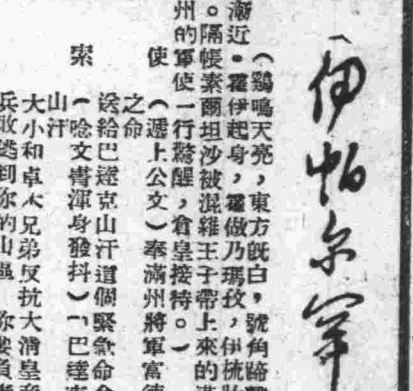 伊帕尔罕
（鷄鳴天亮，東方既白，號角蹄
漸近。霍伊起身，霍做乃瑪孜，伊梳
。隔帳素爾坦沙被混雜王子帶上來的滿
州的軍使一行驚醒，倉皇接待。）
使 （遞上公文）奉滿州將軍富德
之命
送給巴達克山汗這個緊急命令
索 （唸文書渾身發抖）「巴達克
山汗
大小和卓木兄弟反抗大清皇帝
兵敗逃到你的山區 你要負責